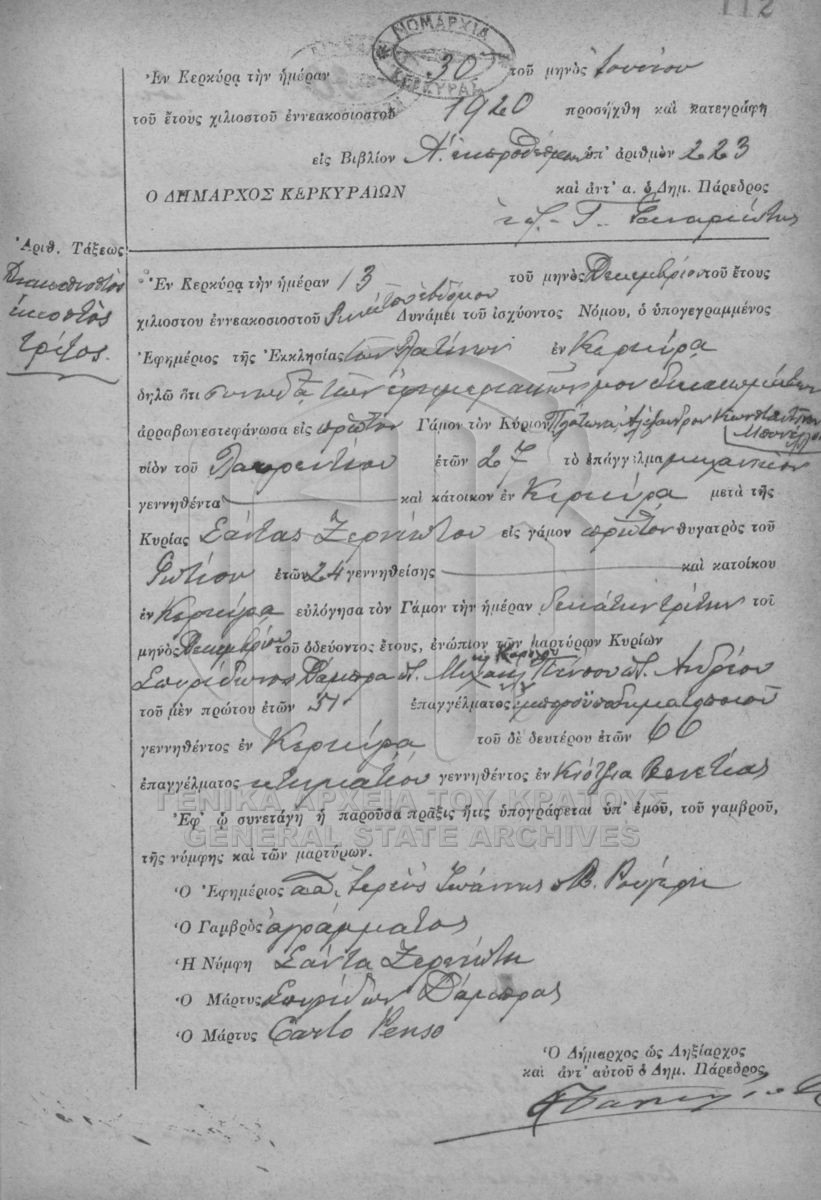 112
ΝΟΜΑΡΧΙΑ
ΚΕΡΚΥΡΑΣ
Ἐν Κερκύρᾳ τὴν ἡμέραν 30 τοῦ μηνὸς Ἰουνίου
τοῦ ἔτους χιλιοστοῦ ἐννεακοσιοστοῦ 1920 προσήχθη καὶ κατεγράφη
εἰς Βιβλίον Α. ὑπ' ἀριθμὸν 223
Ο ΔΗΜΑΡΧΟΣ ΚΕΡΚΥΡΑΙΩΝ καὶ ἀντ' α. ὁ Δημ. Πάρεδρος
Ἀριθ. Τάξεως
Διακοσιοστὸς
εἰκοστὸς
τρίτος.
Ἐν Κερκύρᾳ τὴν ἡμέραν 13 τοῦ μηνὸς Δεκεμβρίου τοῦ ἔτους
χιλιοστου ἐννεακοσιοστοῦ Δυνάμει τοῦ ἰσχύοντος Νόμου, ὁ ὑπογεγραμμένος
Ἐφημέριος τῆς Ἐκκλησίας τῶν Λατίνων ἐν Κερκύρᾳ
δηλῶ ὅτι συνωδᾷ τῶν ἐφημεριακῶν μου δικαιωμάτων
ἀρραβωνεστεφάνωσα εἰς πρῶτον Γάμον τὸν Κύριον Πλάτωνα, Ἀλέξανδρον Κωνσταντῖνον
υἱὸν τοῦ Λαυρεντίου ἐτῶν 27 τὸ ἐπάγγελμα μηχανικὸν
γεννηθέντα καὶ κάτοικον ἐν Κερκύρᾳ μετὰ τῆς
Κυρίας Σάντας Ζερνιώτου εἰς γάμον πρῶτον θυγατρὸς τοῦ
Φωτίου ἐτῶν 24 γεννηθείσης καὶ κατοίκου
ἐν Κερκύρᾳ εὐλόγησα τὸν Γάμον τὴν ἡμέραν δεκάτην τρίτην τοῦ
μηνὸς Δεκεμβρίου τοῦ ὁδεύοντος ἔτους, ἐνώπιον τῶν μαρτύρων Κυρίων
Σπυρίδωνος Δάμπρα τ. Μιχαὴλ κ Καρόλου Πένσου τ. Ἀνδρέου
τοῦ μὲν πρώτου ἐτῶν 51 ἐπαγγέλματος
γεννηθέντος ἐν Κερκύρᾳ τοῦ δὲ δευτέρου ἐτῶν 66
ἐπαγγέλματος κτηματίου γεννηθέντος ἐν Κιότζια Βενετίας
ΓΕΝΙΚΑ ΑΡΧΕΙΑ ΤΟΥ ΚΡΑΤΟΥΣ
Ἐφ' ᾧ συνετάγη ἡ παροῦσα πρᾶξις ἥτις ὑπογράφεται ὑπ' ἐμοῦ, τοῦ γαμβροῦ,
GENERAL STATE ARCHIVES
τῆς νύμφης καὶ τῶν μαρτύρων.
Ὁ Ἐφημέριος ἱερεὺς Ἰωάννης
Ὁ Γαμβρὸς ἀγράμματος
Ἡ Νύμφη Σάντα Ζερνιώτη
Ὁ Μάρτυς Σπυρίδων Δάμπρας
Ὁ Μάρτυς Carlo Penso
Ὁ Δήμαρχος ὡς Ληξίαρχος
καὶ ἀντ' αὐτοῦ ὁ Δημ. Πάρεδρος